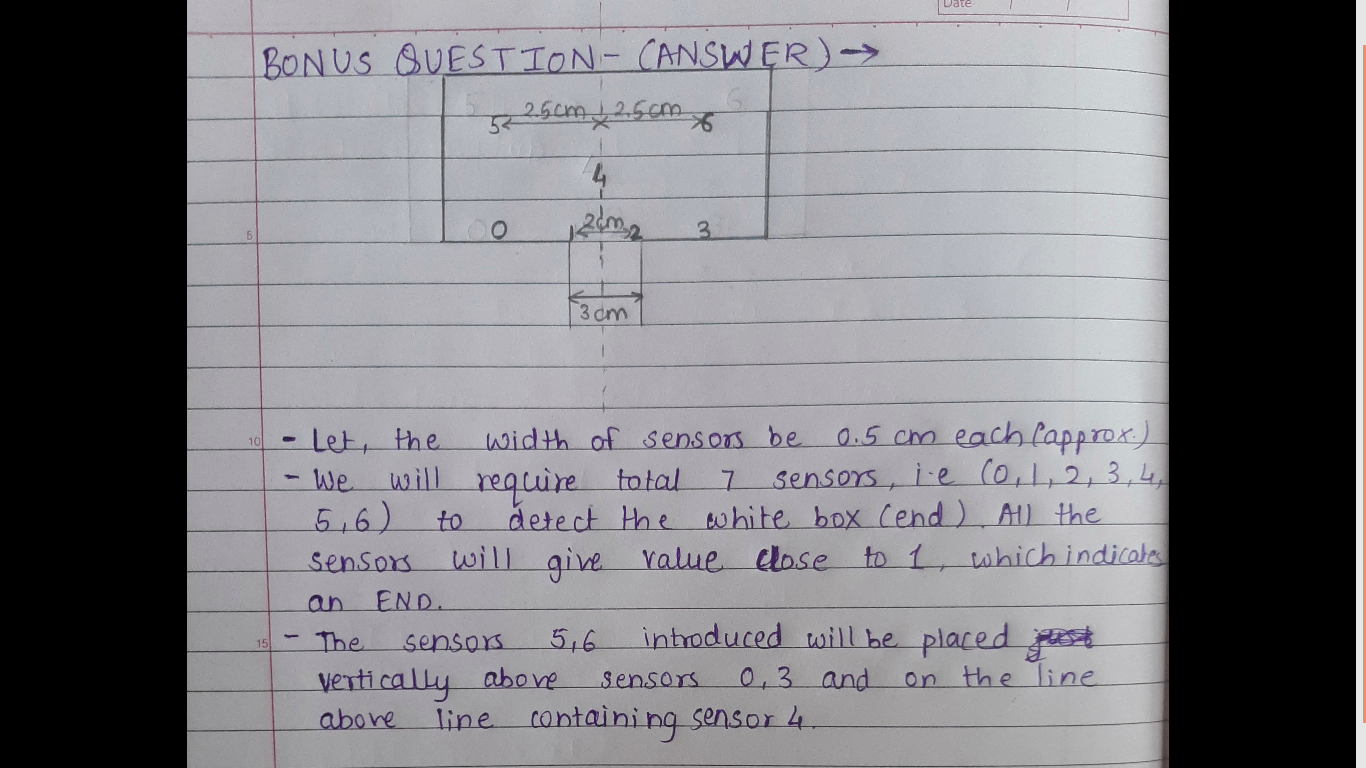 Date
BONUS QUESTION- (ANSWER) →
2.5cm 2.5cm
5 6
4
0 1 2cm 2 3
5
3cm
10 - Let, the width of sensors be 0.5 cm each (approx.)
- We will require total 7 sensors, i.e (0, 1, 2, 3, 4,
5, 6) to detect the white box (end). All the
sensors will give value close to 1, which indicates
an END.
15 - The sensors 5,6 introduced will be placed
vertically above sensors 0, 3 and on the line
above line containing sensor 4.